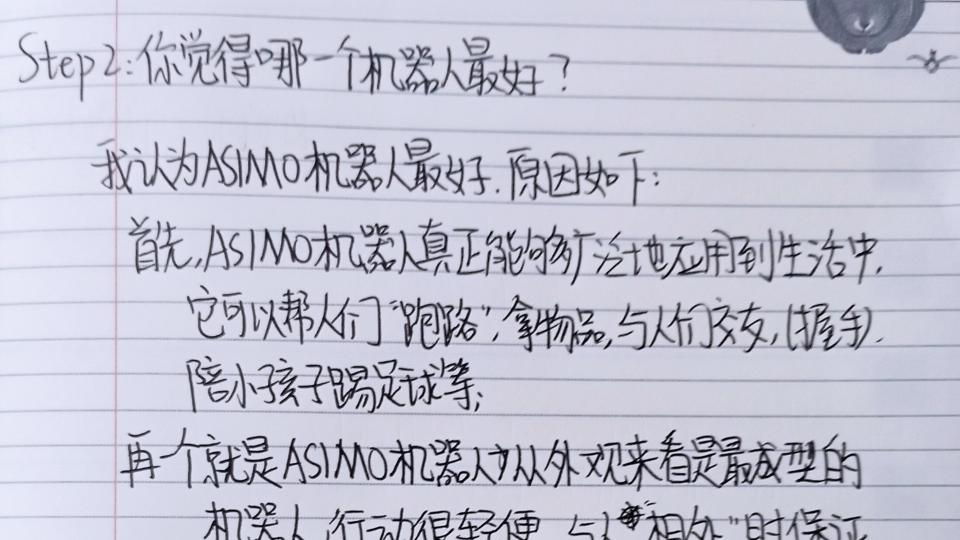 Step2:你觉得哪一个机器人最好?
我认为ASIMO机器人最好.原因如下:
首先,ASIMO机器人真正能够广泛地应用到生活中.
它可以帮人们"跑路",拿物品,与人们交友,(握手).
陪小孩子踢足球等;
再一个就是ASIMO机器人从外观来看是最成型的
机器人,行动很轻便,与人"相处"时保证